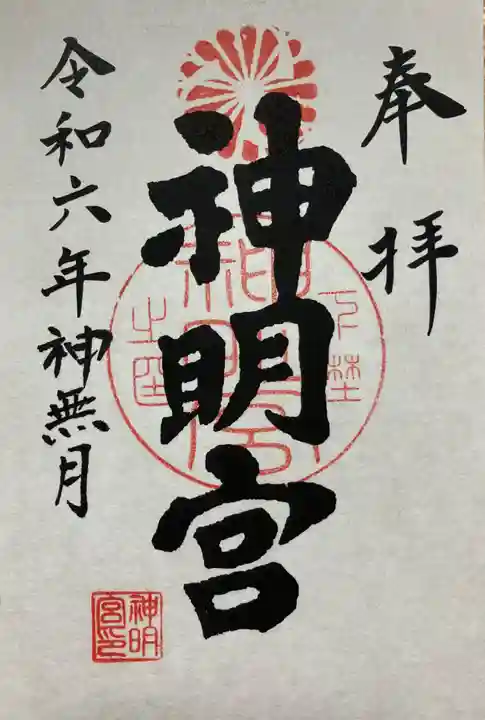 奉拝
神明宮
令和六年神無月
神明
宮印